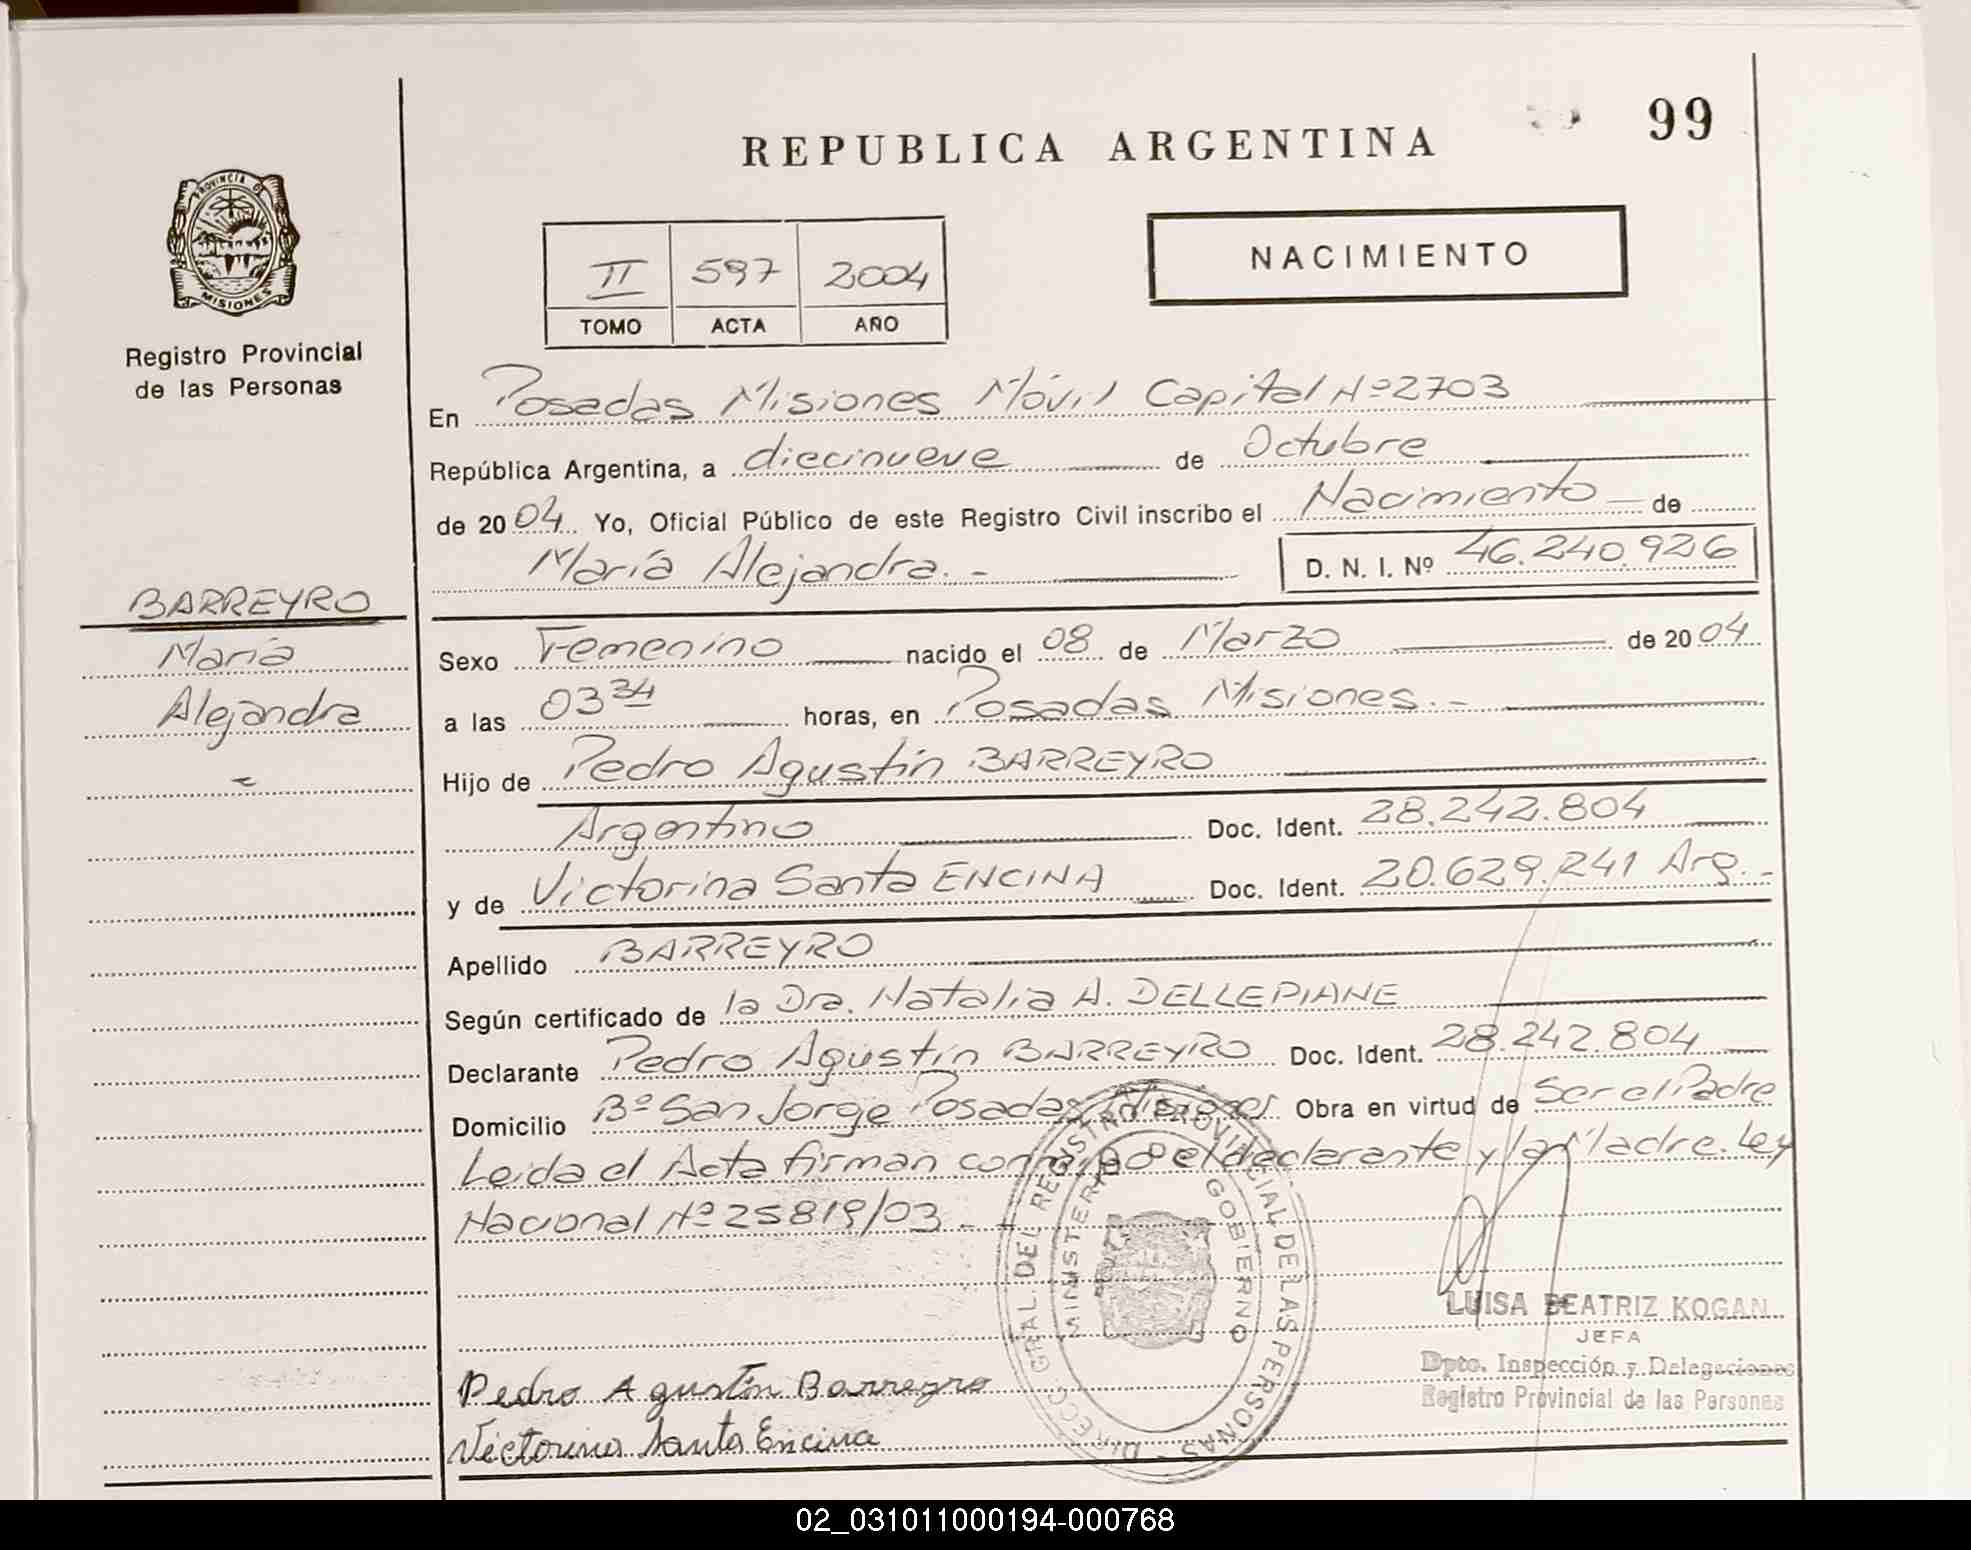 99
REPUBLICA ARGENTINA
PROVINCIA DE
MISIONES
Registro Provincial
de las Personas
NACIMIENTO
II 597 2004
TOMO ACTA AÑO
En Posadas Misiones Móvil Capital Nº 2703
República Argentina, a diecinueve de Octubre
de 2004 Yo, Oficial Público de este Registro Civil inscribo el Nacimiento de
María Alejandra.- D. N. I. Nº 46.240.926
BARREYRO
María
Alejandra
Sexo Femenino nacido el 08 de Marzo de 2004
a las 03 34 horas, en Posadas Misiones.-
Hijo de Pedro Agustín BARREYRO
Argentino Doc. Ident. 28.242.804
y de Victorina Santa ENCINA Doc. Ident. 20.629.241 Arg.-
Apellido BARREYRO
Según certificado de la Dra. Natalia A. DELLEPIANE
Declarante Pedro Agustín BARREYRO Doc. Ident. 28.242.804
Domicilio Bº San Jorge Posadas Misiones Obra en virtud de Ser el Padre
Leida el Acta firman conmigo el declarante y la Madre. Ley
Nacional Nº 25819/03 - -
DIRECC. GRAL. DEL REGISTRO PROVINCIAL DE LAS PERSONAS -
MINISTERIO DE GOBIERNO
LUISA BEATRIZ KOGAN
JEFA
Dpto. Inspección y Delegaciones
Registro Provincial de las Personas
Pedro Agustín Barreyro
Victorina Santa Encina
02_031011000194-000768